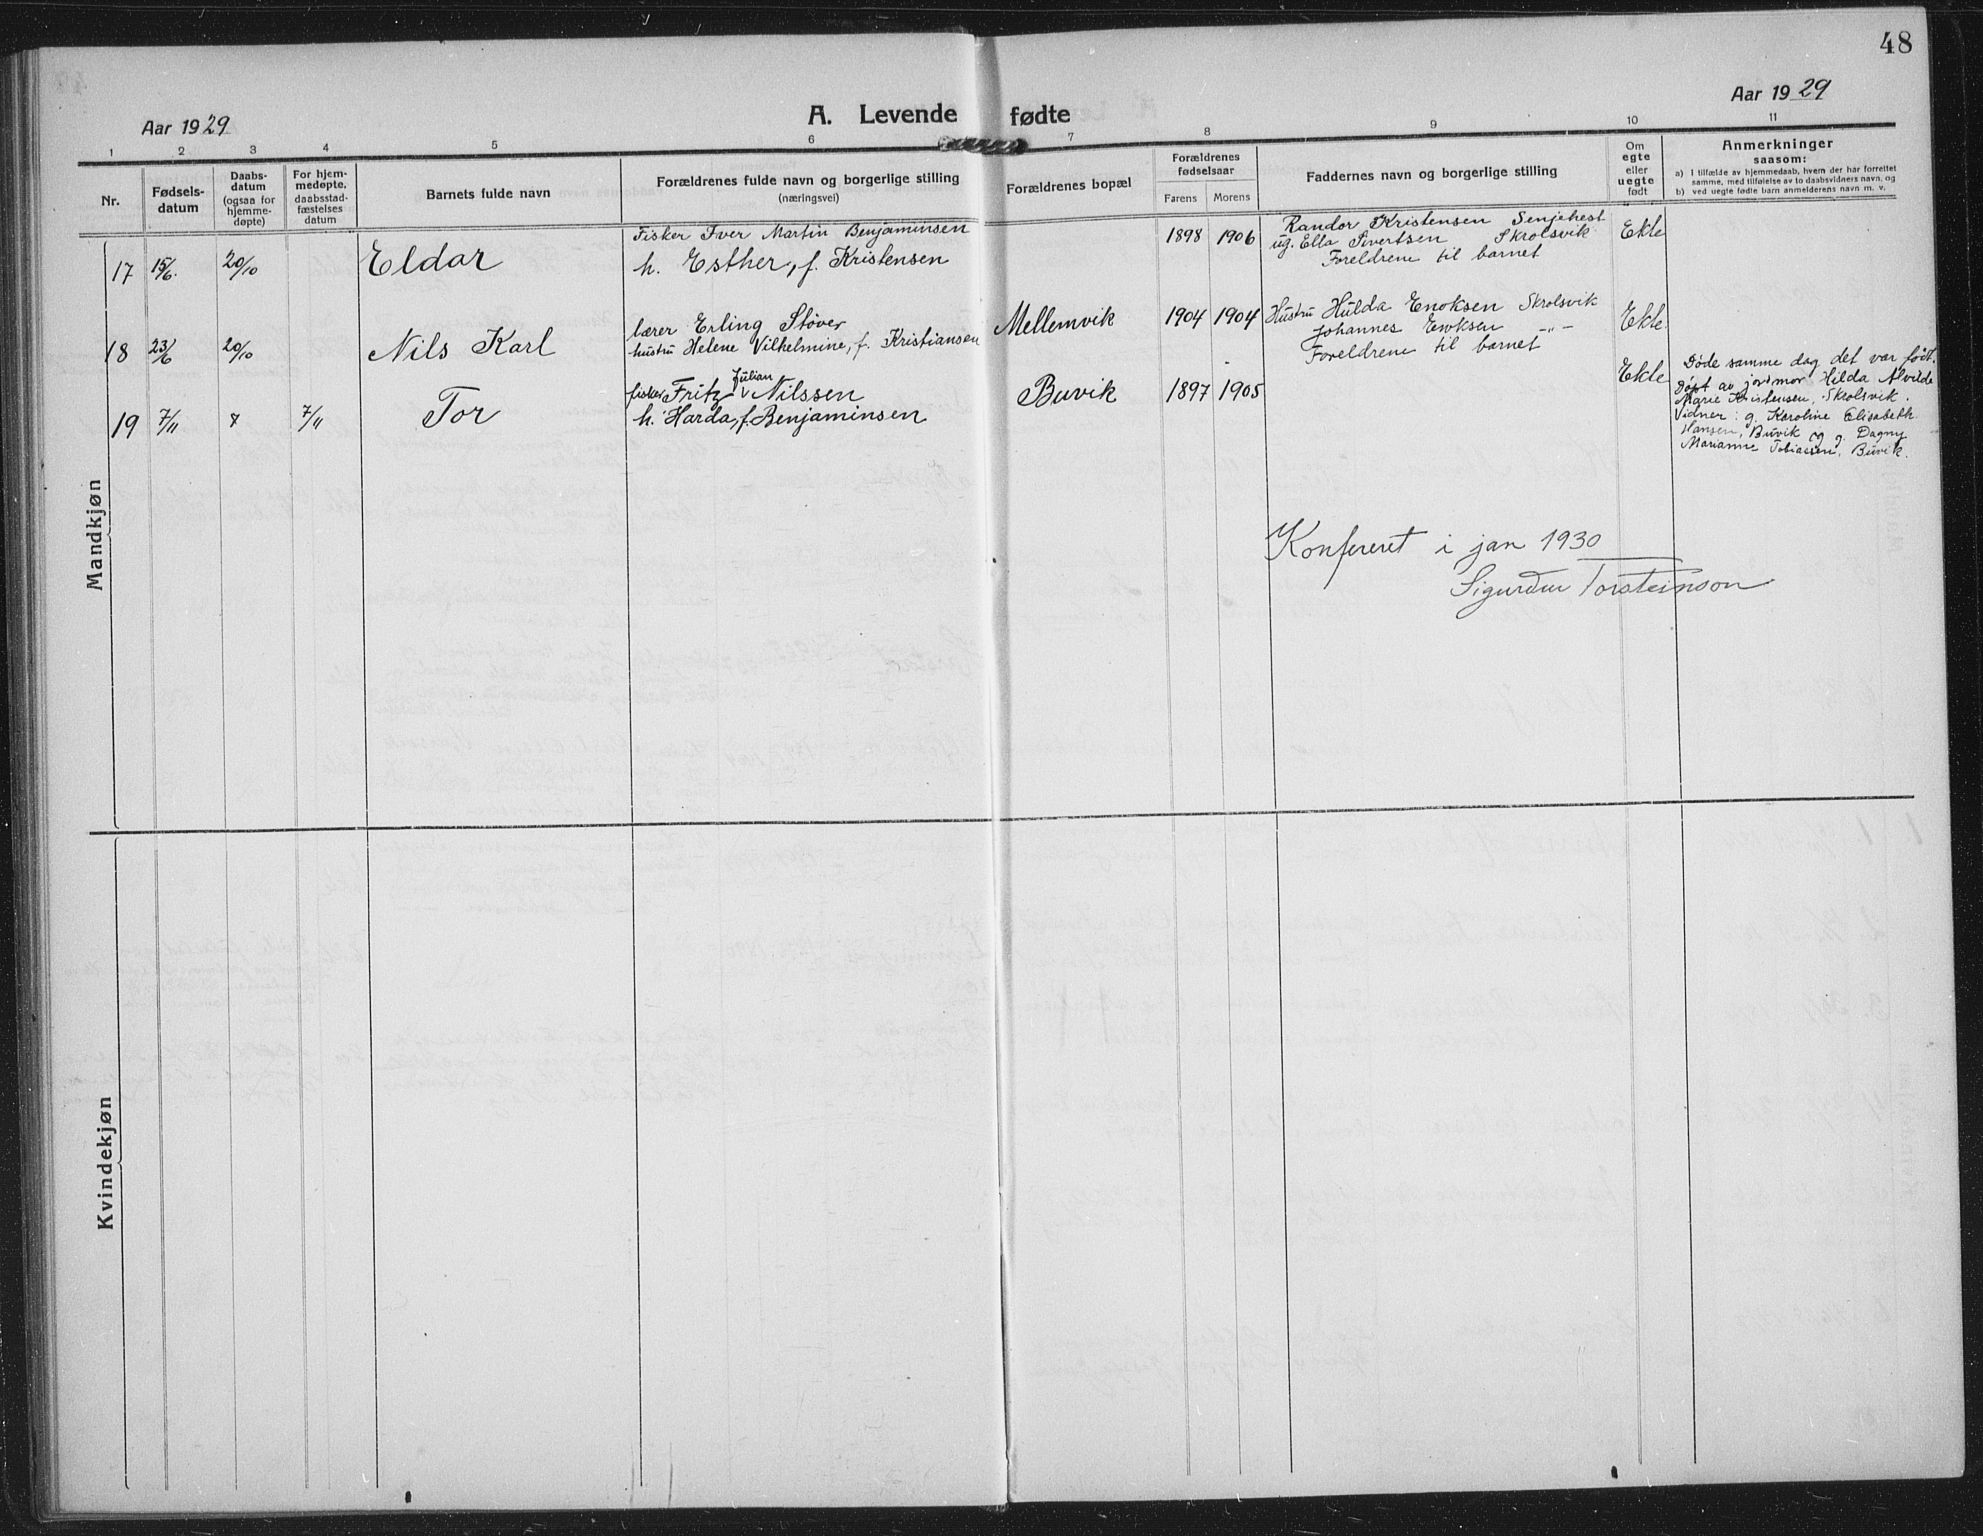 48
Aar 1929
A. Levende fødte
Aar 1929
1 2 3 4 5 6 7 8 9 10 11
Nr.
Fødsels-
datum
Daabs-
datum
(ogsaa for
hjemme-
døpte)
For hjem-
medøpte,
daabsstad-
fæstelses
datum
Barnets fulde navn
Forældrenes fulde navn og borgerlige stilling
(næringsvei)
Forældrenes bopæl
Forældrenes
fødselsaar
Farens Morens
Faddernes navn og borgerlige stilling
Om
egte
eller
uegte
født
Anmerkninger
saasom:
a) I tilfælde av hjemmedaab, hvem der har forrettet
samme, med tilføielse av to daabsvidners navn, og
b) ved uegte fødte barn anmelderens navn m. v.
Mandkjøn
17 15/6. 20/10 Eldar
Fisker Iver Martin Benjaminsen
h. Esther, f. Kristensen
1898 1906
Randor Kristensen Senjehest
ug. Ella Sivertsen Skrolsvik
Foreldrene til barnet
Ekte
18 23/6 20/10 Nils Karl
lærer Erling Støver
hustru Helene Vilhelmine, f. Kristiansen
Mellemvik 1904 1904
Hustru Hulda Enoksen Skrolsvik
Johannes Enoksen -"-
Foreldrene til barnet
Ekte
19 7/11 7/11 Tor
fisker Fritz Julian Nilssen
h. Harda, f. Benjaminsen
Buvik 1897 1905
Ekte
Døde samme dag det var født.
Døpt av jordmor Hilda Alvilde
Marie Kristensen, Skrolsvik.
Vidner: g. Karoline Elisabeth
Hansen, Buvik og g. Dagny
Marianne Tobiassen, Buvik.
Konfereret i jan 1930
Sigurdur Torsteinson
Kvindekjøn